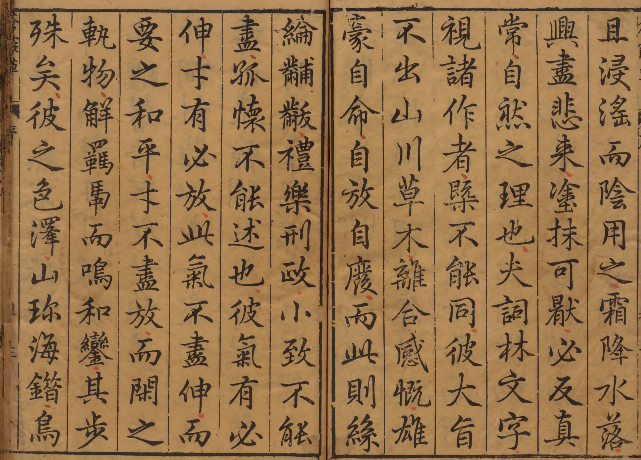 且浸淫而陰用之霜降水落
興盡悲来塗抹可厭必反真
常自然之理也夫詞林文字
視諸作者槩不能同彼大旨
不出山川草木離合感慨雄
豪自命自放自廢而此則絲
綸黼黻禮樂刑政小致不能
盡孤懐不能述也彼氣有必
伸才有必放此氣不盡伸而
要之和平才不盡放而閑之
軌物解羈馽而鳴和鑾其步
殊矣彼之色澤山珎海錯烏